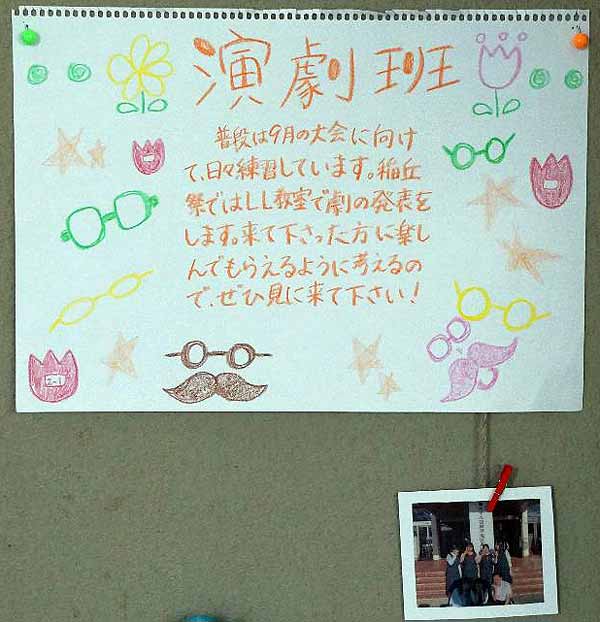 演劇班
普段は9月の大会に向け
て、日々練習しています。稲丘
祭ではLL教室で劇の発表を
します。来て下さった方に楽し
んでもらえるように考えるの
で、ぜひ見に来て下さい!
2-1